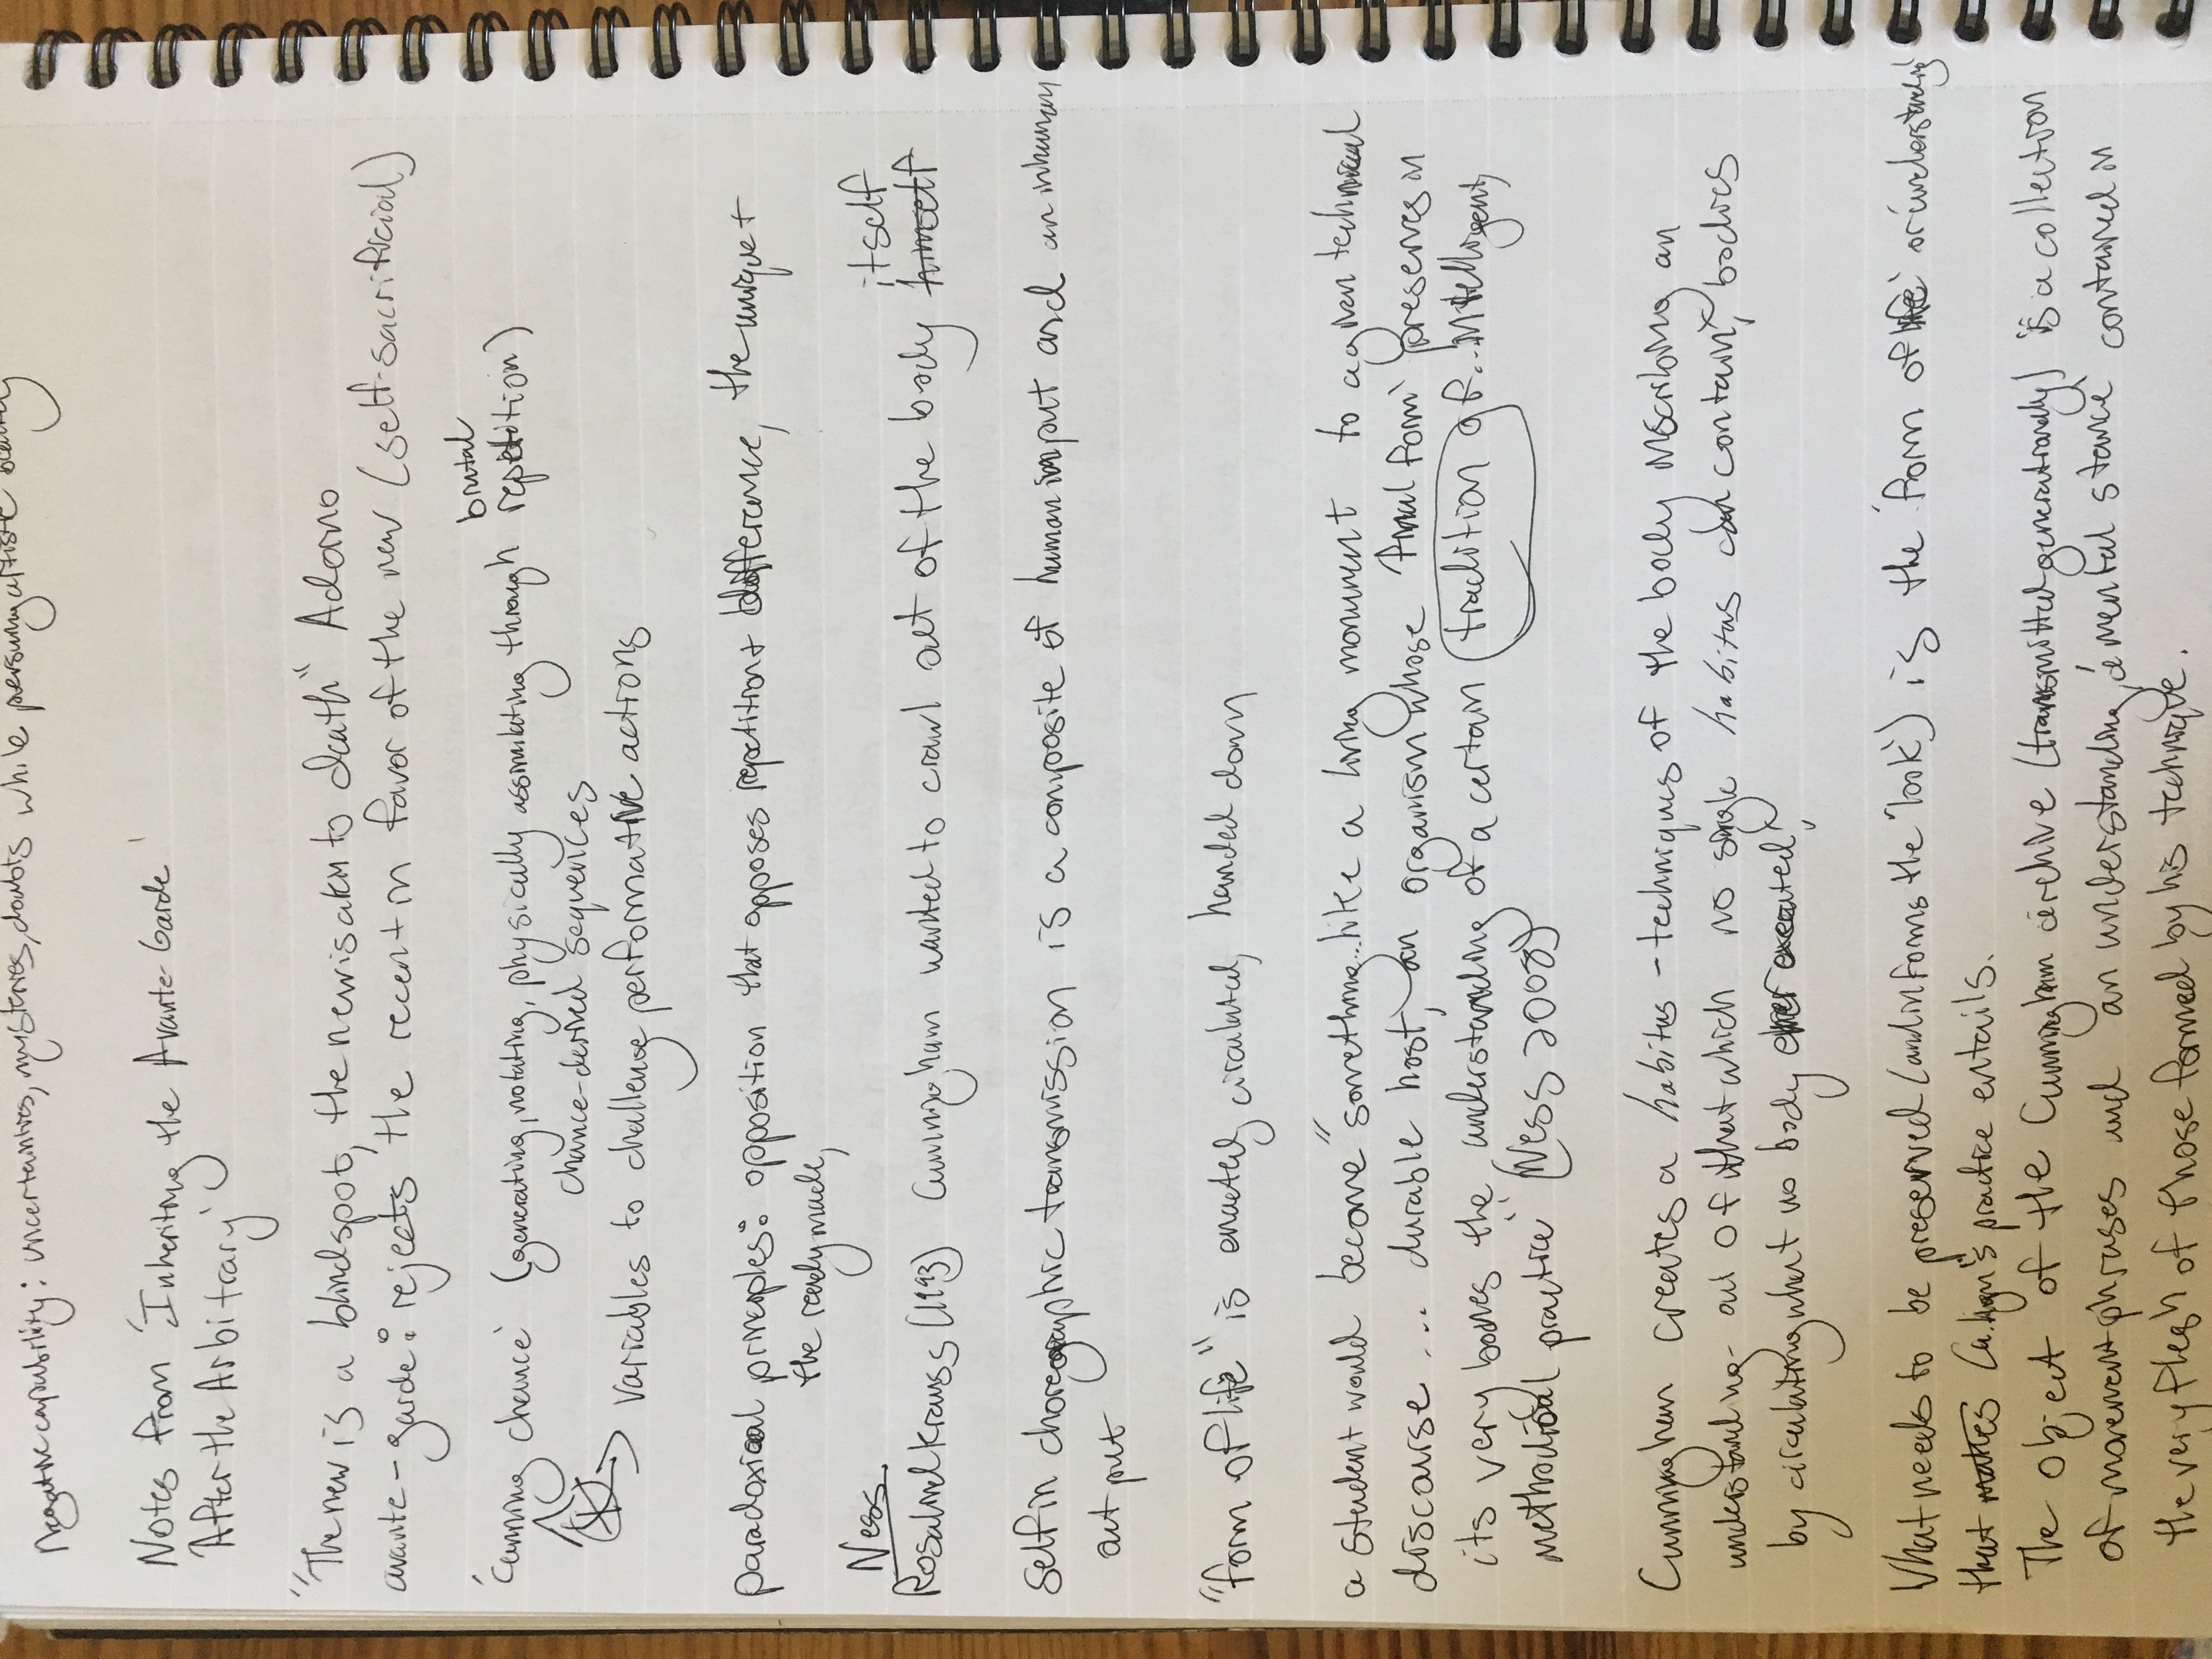 Negative capability: uncertainties, mysteries, doubts while persuing artistic beauty
Notes from 'Inheriting the Avante-Garde'
'After the Arbitrary'
"The new is a blindspot, the new is akin to death" Adorno
avante-garde: rejects the recent in favor of the new (self-sacrificial)
brutal
'Cunning chance' (generating, notating, physically assimilating through repetition)
chance-derived sequences
variables to challenge performative actions
paradoxical principles: opposition that opposes repetition + difference, the unique +
the readymade,
Ness
itself
Rosalind Krauss (1993) Cunningham wanted to crawl out of the body himself
Self in choreographic transmission is a composite of human input and an inhuman
out put
"form of life" is enacted, circulated, handed down
a student would become "something...like a living monument to a given technical
discourse... durable host, an organism whose final form preserves in
its very bones the understanding of a certain tradition of... intelligent,
methodical practice" (Ness 2008)
Cunningham creates a habitus - techniques of the body inscribing an
understanding - out of that which no single habitus can contain, bodies
by circulating what no body ever executed,
What needs to be preserved (and informs the 'look') is the 'form of life' or understanding
that matters Cunningham's practice entails.
The object of the Cunningham archive (transmitted generationally) is a collection
of movement phrases and an understanding, a mental stance contained in
the very flesh of those formed by his technique.